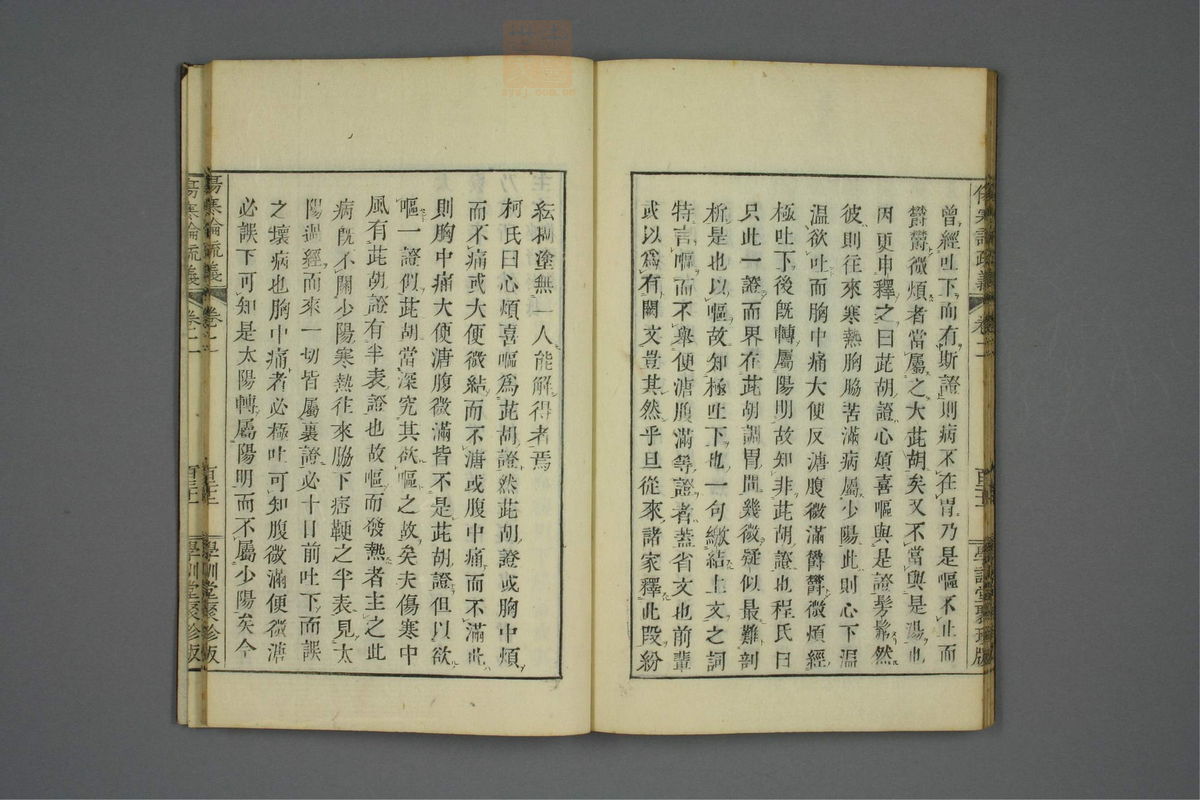 曾經吐下而有斯證則病不在胃乃是嘔不止而
鬱鬱微煩者當屬之大茈胡矣又不當與是湯也
因更申釋之曰茈胡證心煩喜嘔與是證髣髴然
彼則往來寒熱胸脇苦滿病屬少陽此則心下溫
溫欲吐而胸中痛大便反溏腹微滿鬱鬱微煩經
極吐下後旣轉屬陽明故知非茈胡證也程氏曰
只此一證而界在茈胡調胃間幾微疑似最難剖
析是也以嘔故知極吐下也一句繳結上文之詞
特言嘔而不舉便溏腹滿等證者蓋省文也前輩
或以爲有闕文豈其然乎且從來諸家釋此段紛
紜糊塗無一人能解得者焉
柯氏曰心煩喜嘔爲茈胡證然茈胡證或胸中煩
而不痛或大便微結而不溏或腹中痛而不滿此
則胸中痛大便溏腹微滿皆不是茈胡證但以欲
嘔一證似茈胡當深究其欲嘔之故矣夫傷寒中
風有茈胡證有半表證也故嘔而發熱者主之此
病旣不關少陽寒熱往來脇下痞鞕之半表見太
陽過經而來一切皆屬裏證必十日前吐下而誤
之壞病也胸中痛者必極吐可知腹微滿便微溏
必誤下可知是太陽轉屬陽明而不屬少陽矣今
傷寒論疏義
卷二
學訓堂聚珍版